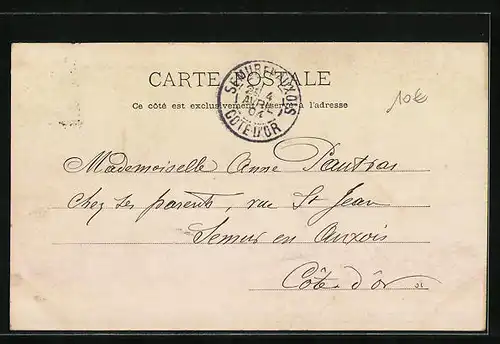 CARTE POSTALE
Ce côté est exclusivement réservé à l'adresse
SEMUR-EN-AUXOIS
4
AVRIL
04
COTE D'OR
10€
Mademoiselle Anne Pautras
chez ses parents, rue St Jean
Semur en Auxois
Côte-d'Or